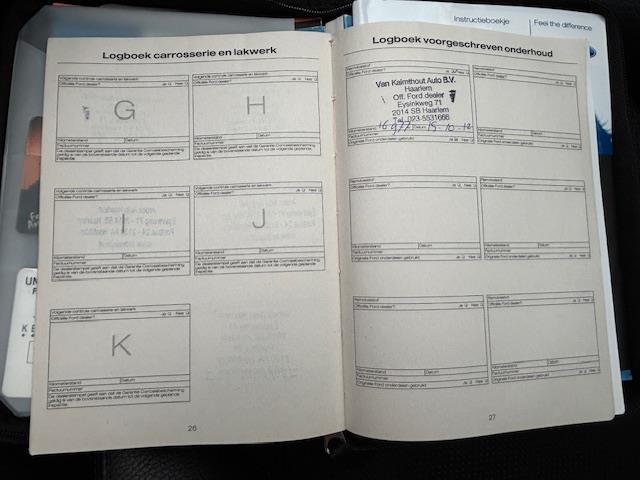 Instructieboekje
Feel the difference
Logboek carrosserie en lakwerk
Volgende controle carrosserie en lakwerk
Officiële Ford dealer? Ja Nee
G
Kilometerstand Datum
Factuurnummer
De dealerstempel geeft aan dat de Garantie Corrosiebescherming
geldig is van de bovenstaande datum tot de volgende geplande
inspectie
Volgende controle carrosserie en lakwerk
Officiële Ford dealer? Ja Nee
H
Kilometerstand Datum
Factuurnummer
De dealerstempel geeft aan dat de Garantie Corrosiebescherming
geldig is van de bovenstaande datum tot de volgende geplande
inspectie
Volgende controle carrosserie en lakwerk
Officiële Ford dealer? Ja Nee
Kilometerstand Datum
Factuurnummer
De dealerstempel geeft aan dat de Garantie Corrosiebescherming
geldig is van de bovenstaande datum tot de volgende geplande
inspectie
Volgende controle carrosserie en lakwerk
Officiële Ford dealer? Ja Nee
J
Kilometerstand Datum
Factuurnummer
De dealerstempel geeft aan dat de Garantie Corrosiebescherming
geldig is van de bovenstaande datum tot de volgende geplande
inspectie
Volgende controle carrosserie en lakwerk
Officiële Ford dealer? Ja Nee
K
Kilometerstand Datum
Factuurnummer
De dealerstempel geeft aan dat de Garantie Corrosiebescherming
geldig is van de bovenstaande datum tot de volgende geplande
inspectie
26
Logboek voorgeschreven onderhoud
Remvloeistof
Officiële Ford dealer? Ja Nee
Van Kalmthout Auto B.V.
Haarlem
Off. Ford dealer
Eysinkweg 71
2014 SB Haarlem
Tel. 023-5531666
Datum 15-10-12
Originele Ford onderdelen gebruikt Ja Nee
Remvloeistof
Officiële Ford dealer? Ja Nee
Kilometerstand Datum
Factuurnummer
Originele Ford onderdelen gebruikt Ja Nee
Remvloeistof
Officiële Ford dealer? Ja Nee
Kilometerstand Datum
Factuurnummer
Originele Ford onderdelen gebruikt Ja Nee
Remvloeistof
Officiële Ford dealer? Ja Nee
Kilometerstand Datum
Factuurnummer
Originele Ford onderdelen gebruikt Ja Nee
Remvloeistof
Officiële Ford dealer? Ja Nee
Kilometerstand Datum
Factuurnummer
Originele Ford onderdelen gebruikt Ja Nee
Remvloeistof
Officiële Ford dealer? Ja Nee
Kilometerstand Datum
Factuurnummer
Originele Ford onderdelen gebruikt Ja Nee
27